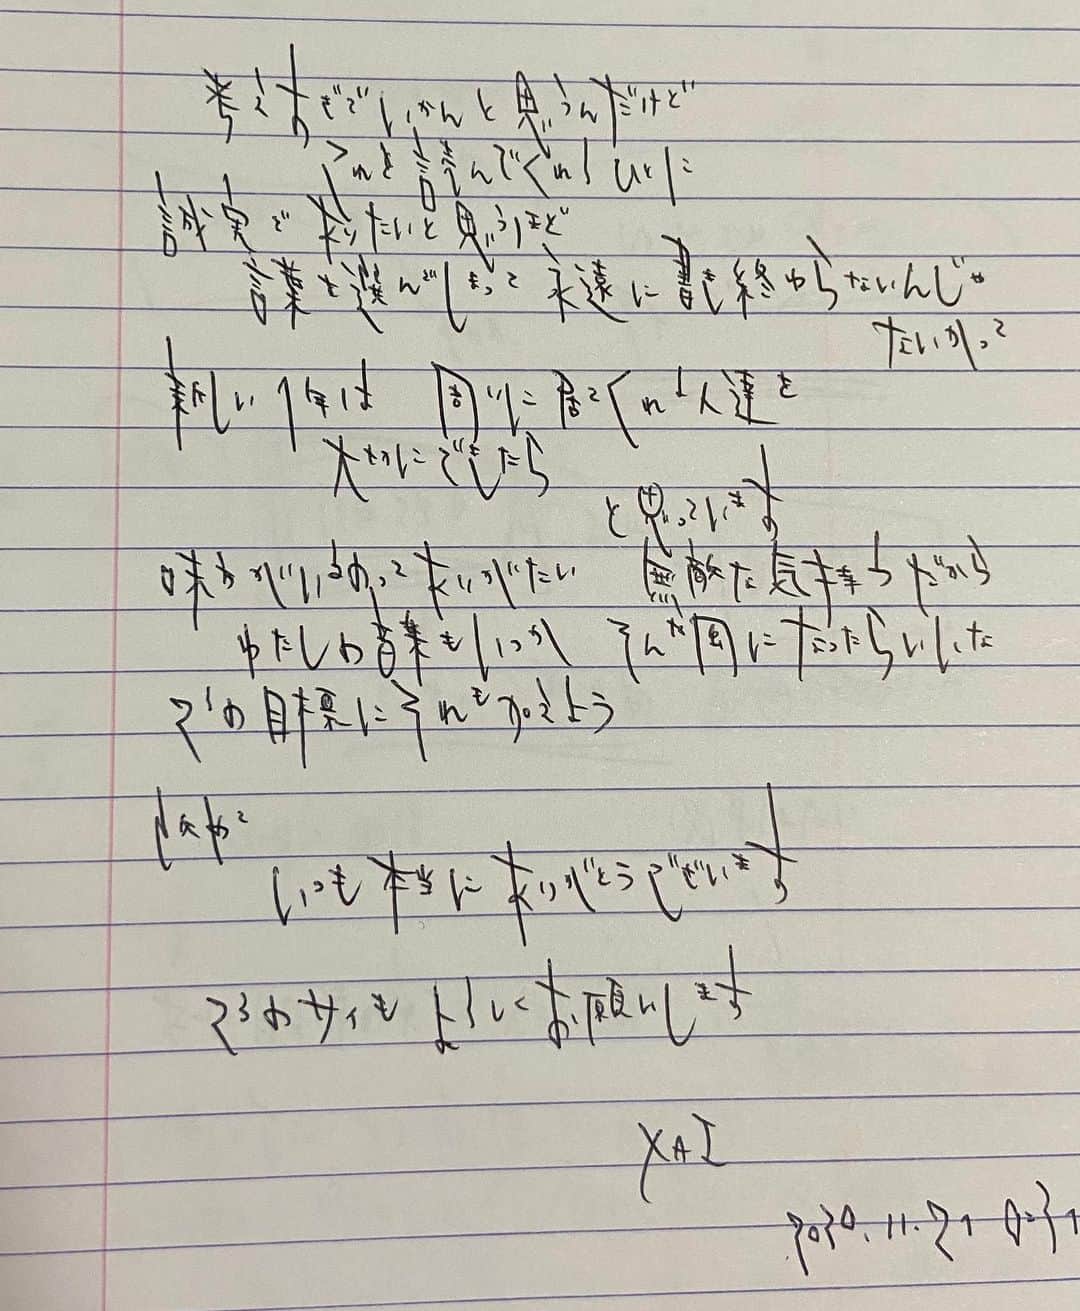 考えすぎていかんと思うんだけど
これを読んでくれるひとに
誠実で在りたいと思うほど
言葉を選んでしまって永遠に書き終わらないんじゃ
ないかって
新しい1年は 周りに居てくれる人達を
大切にできたら
と思っています
味方がいるのって ありがたい 無敵な気持ちだから
わたしの音楽もいつか そんな風になったらいいな
23の目標にそれも加えよう
あらためて
いつも本当にありがとうございます
23のサイもよろしくお願いします
XAI